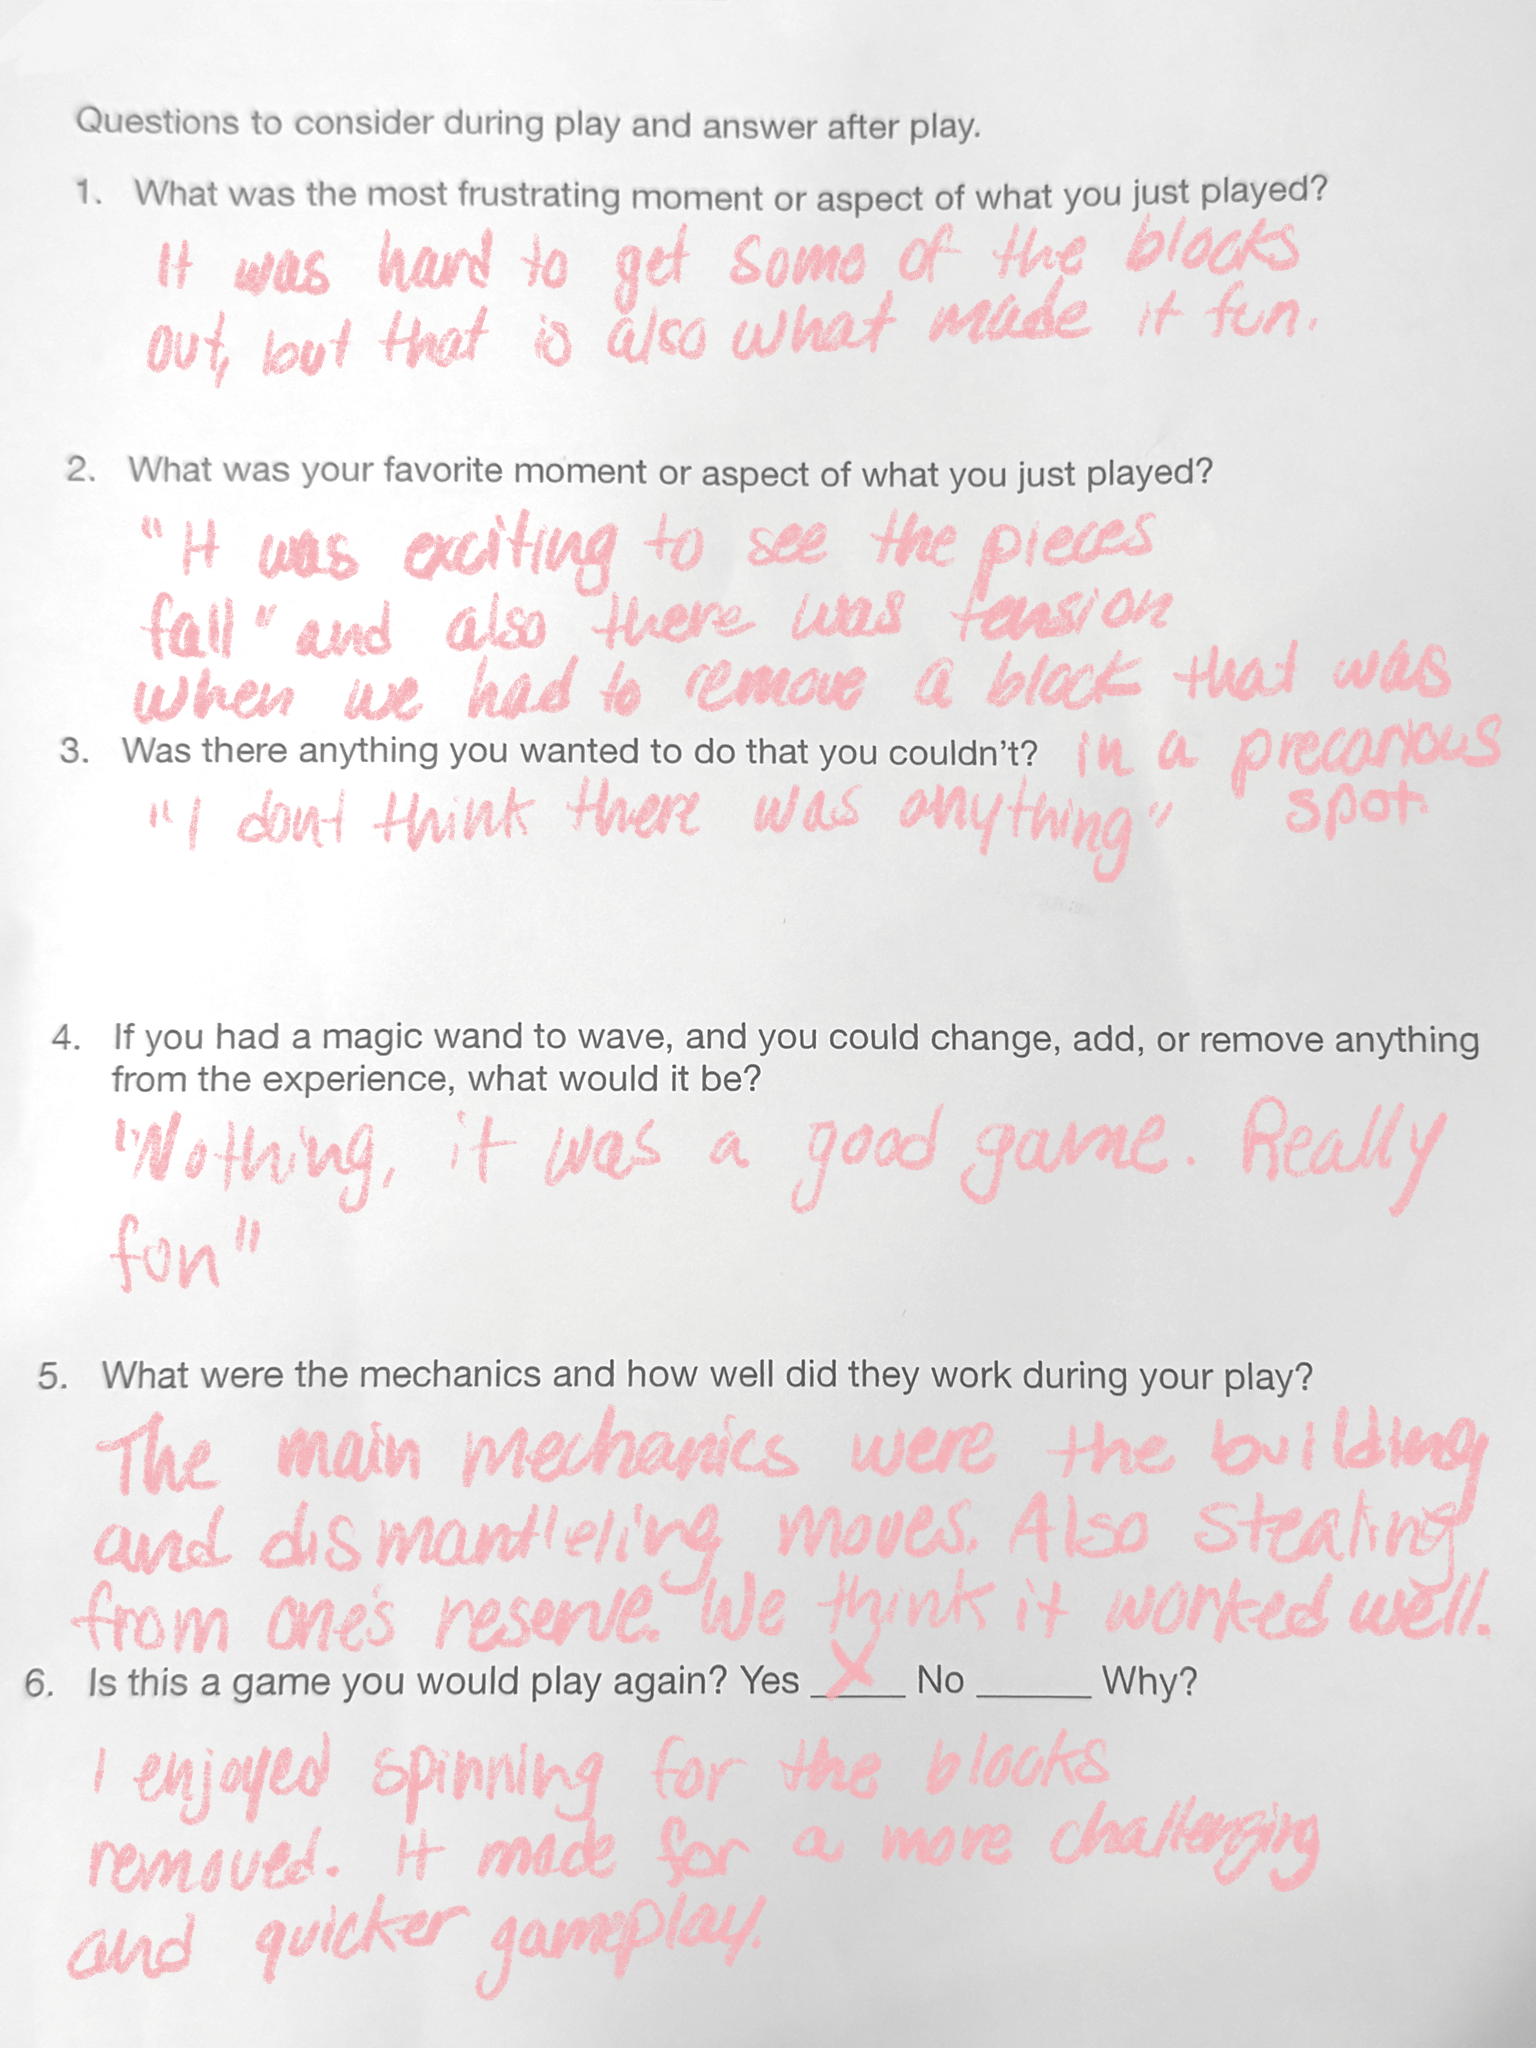 Questions to consider during play and answer after play.
1. What was the most frustrating moment or aspect of what you just played?
It was hard to get some of the blocks
out, but that is also what made it fun.
2. What was your favorite moment or aspect of what you just played?
"It was exciting to see the pieces
fall" and also there was tension
when we had to remove a block that was
in a precarious
spot.
3. Was there anything you wanted to do that you couldn't?
"I dont think there was anything"
4. If you had a magic wand to wave, and you could change, add, or remove anything
from the experience, what would it be?
"Nothing, it was a good game. Really
fun"
5. What were the mechanics and how well did they work during your play?
The main mechanics were the building
and dismantleling moves. Also stealing
from one's reserve. We think it worked well.
6. Is this a game you would play again? Yes __X__ No ______ Why?
I enjoyed spinning for the blocks
removed. It made for a more challenging
and quicker gameplay.